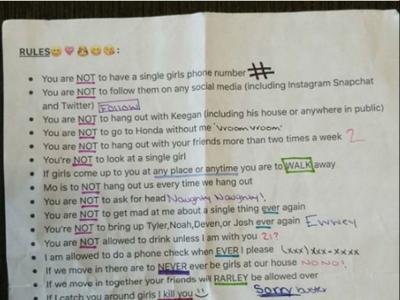 RULES😊💗🐵😊😘:
• You are NOT to have a single girls phone number #
• You are NOT to follow them on any social media (including Instagram Snapchat
and Twitter) Follow
• You are NOT to hang out with Keegan (including his house or anywhere in public)
• You are NOT to go to Honda without me 'vroom vroom'
• You are NOT to hang out with your friends more than two times a week 2
• You're NOT to look at a single girl
• If girls come up to you at any place or anytime you are to WALK away
• Mo is to NOT hang out us every time we hang out
• You are NOT to ask for head Naughty Naughty!
• You are NOT to get mad at me about a single thing ever again
• You're NOT to bring up Tyler,Noah,Deven,or Josh ever again Ewwey
• You are NOT allowed to drink unless I am with you 21?
• I am allowed to do a phone check when EVER I please (xxx)xxx-xxxx
• If we move in there are to NEVER ever be girls at our house NO NO!
• If we move in together your friends will RARLEY be allowed over
• If I catch you around girls I kill you Sorry